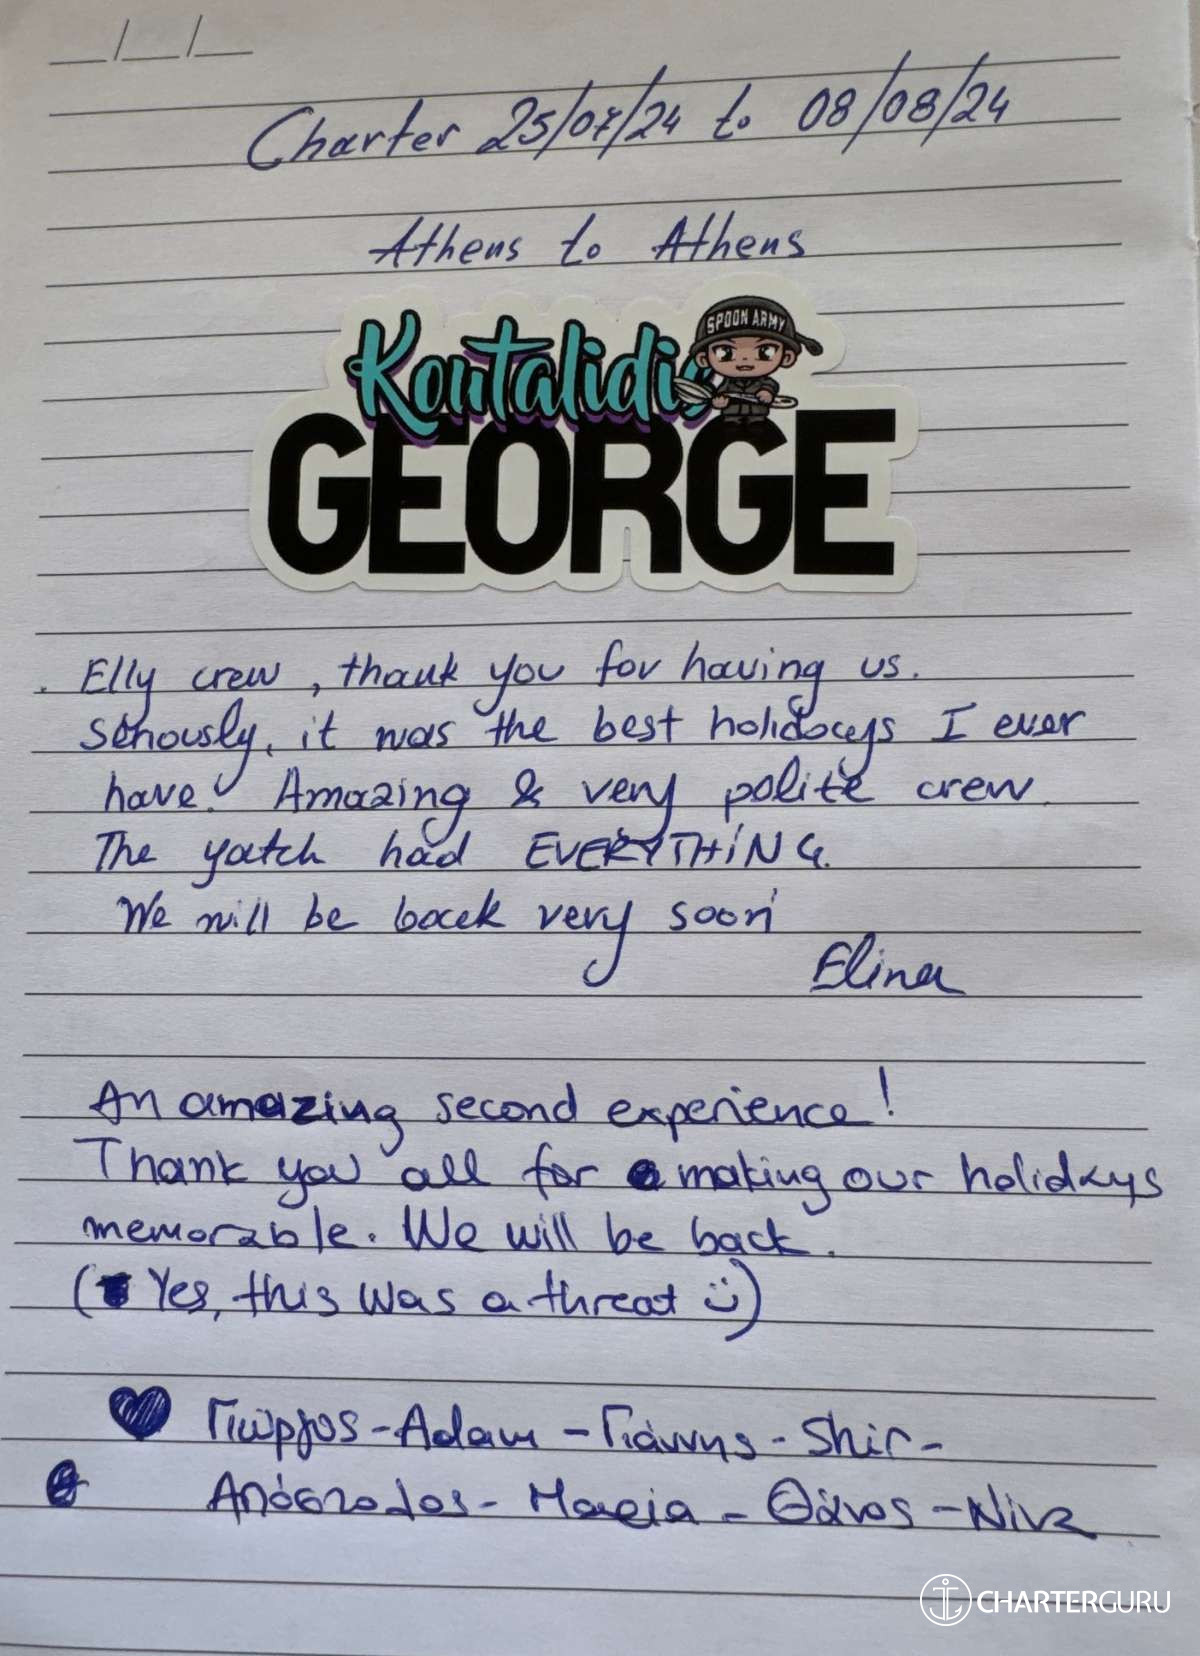 __/__/__
Charter 25/07/24 to 08/08/24
Athens to Athens
SPOON ARMY
Koutalidis
GEORGE
. Elly crew, thank you for having us.
Seriously, it was the best holidays I ever
have! Amazing & very polite crew.
The yatch had EVERYTHING.
We will be back very soon
Elina
An amazing second experience!
Thank you all for making our holidays
memorable. We will be back.
(Yes, this was a threat :))
♥ Γιώργος - Adam - Γιάννης - Shir -
Απόστολος - Μαρία - Θάνος - Νίνα
CHARTERGURU